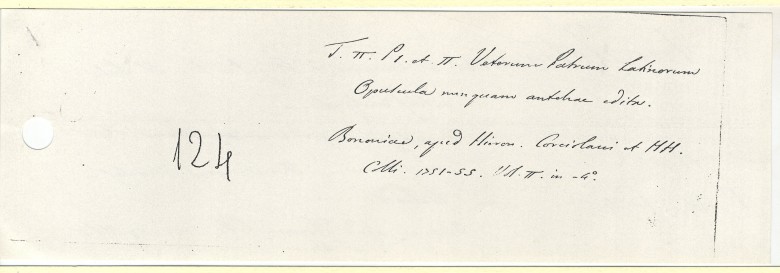 T. II. P I. et II. Veterum Patrum Latinorum
Opuscula nunquam antehac edita.
124
Bononiae, apud Hieron. Corciolani et HH.
Colli. 1751-55. Vol. II. in -4°.